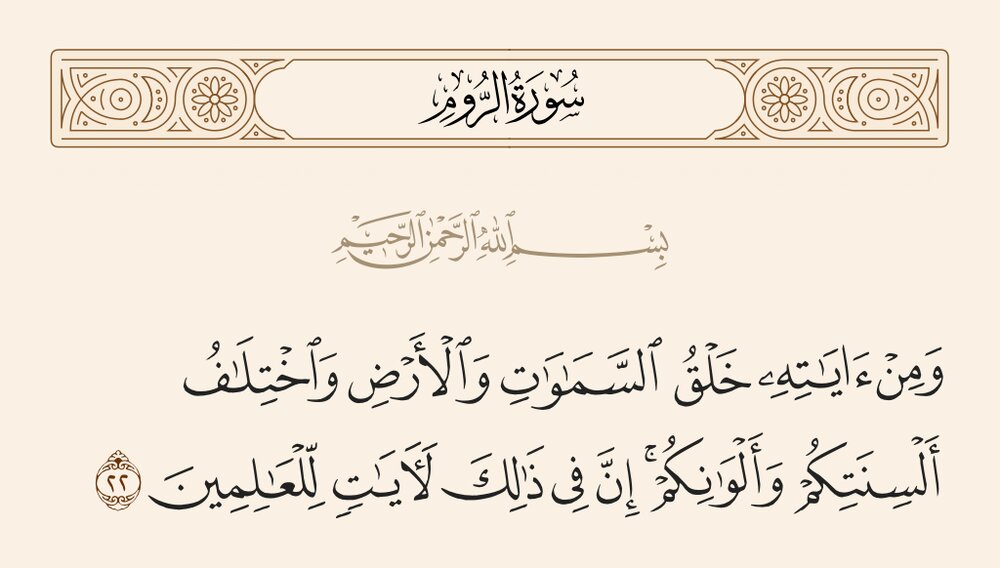 سُورَةُ الرُّومِ
بِسْمِ ٱللَّهِ ٱلرَّحْمَٰنِ ٱلرَّحِيمِ
وَمِنْ ءَايَٰتِهِۦ خَلْقُ ٱلسَّمَٰوَٰتِ وَٱلْأَرْضِ وَٱخْتِلَٰفُ
أَلْسِنَتِكُمْ وَأَلْوَٰنِكُمْ ۚ إِنَّ فِى ذَٰلِكَ لَءَايَٰتٍ لِّلْعَٰلِمِينَ ٢٢